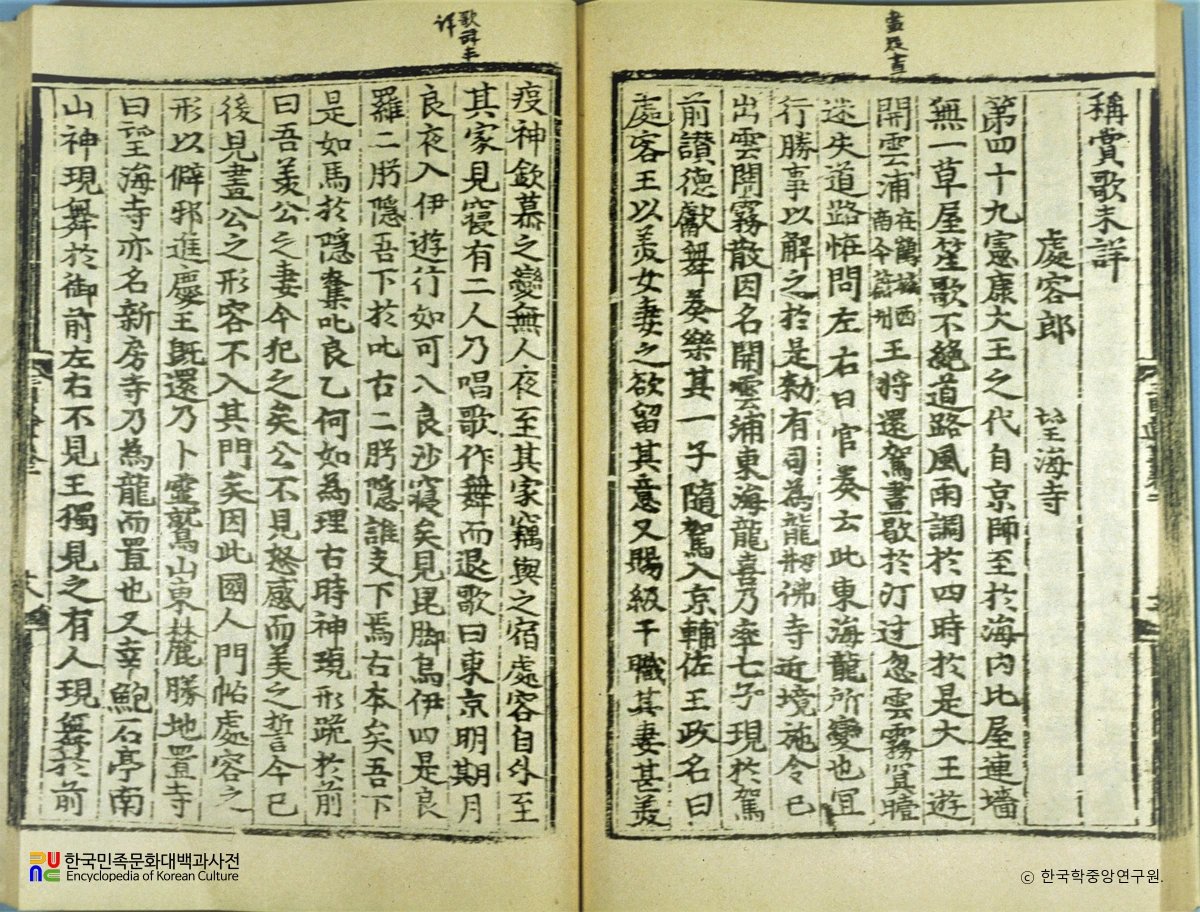 稱賞歌未詳
處容郎 望海寺
第四十九憲康大王之代自京師至於海內比屋連墻
無一草屋笙歌不絕道路風雨調於四時於是大王遊
開雲浦在鶴城西南今蔚州王將還駕晝歇於汀过忽雲霧冥曀
迷失道路恠問左右日官奏云此東海龍所變也宜
行勝事以解之於是勑有司為龍刱佛寺近境施令已
出雲開霧散因名開雲浦東海龍喜乃率七子現於駕
前讃德獻舞奏樂其一子隨駕入京輔佐王政名曰
處容王以美女妻之欲留其意又賜級干職其妻甚美
疫神欽慕之變無人夜至其家竊與之宿處容自外至
其家見寢有二人乃唱歌作舞而退歌曰東京明期月
良夜入伊遊行如可入良沙寢矣見昆脚烏伊四是良
羅二肹隱吾下於叱古二肹隱誰支下焉古本矣吾下
是如馬於隱奪叱良乙何如為理古時神現形跪於前
曰吾羨公之妻今犯之矣公不見怒感而美之誓今已
後見畫公之形容不入其門矣因此國人門帖處容之
形以僻邪進慶王旣還乃卜靈鷲山東麓勝地置寺
曰望海寺亦名新房寺乃為龍而置也又幸鮑石亭南
山神現舞於御前左右不見王獨見之有人現舞於前
한국민족문화대백과사전
Encyclopedia of Korean Culture
ⓒ 한국학중앙연구원.